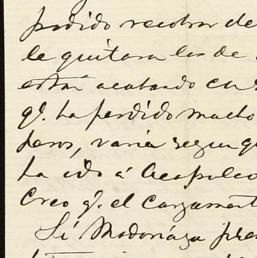 perdido recobrar de
le quitara los de
están acabando con
qe. ha perdido mucho
pero, varia segun q
ha ido á Acapulco
Creo q. el cargament
Si Madariaga